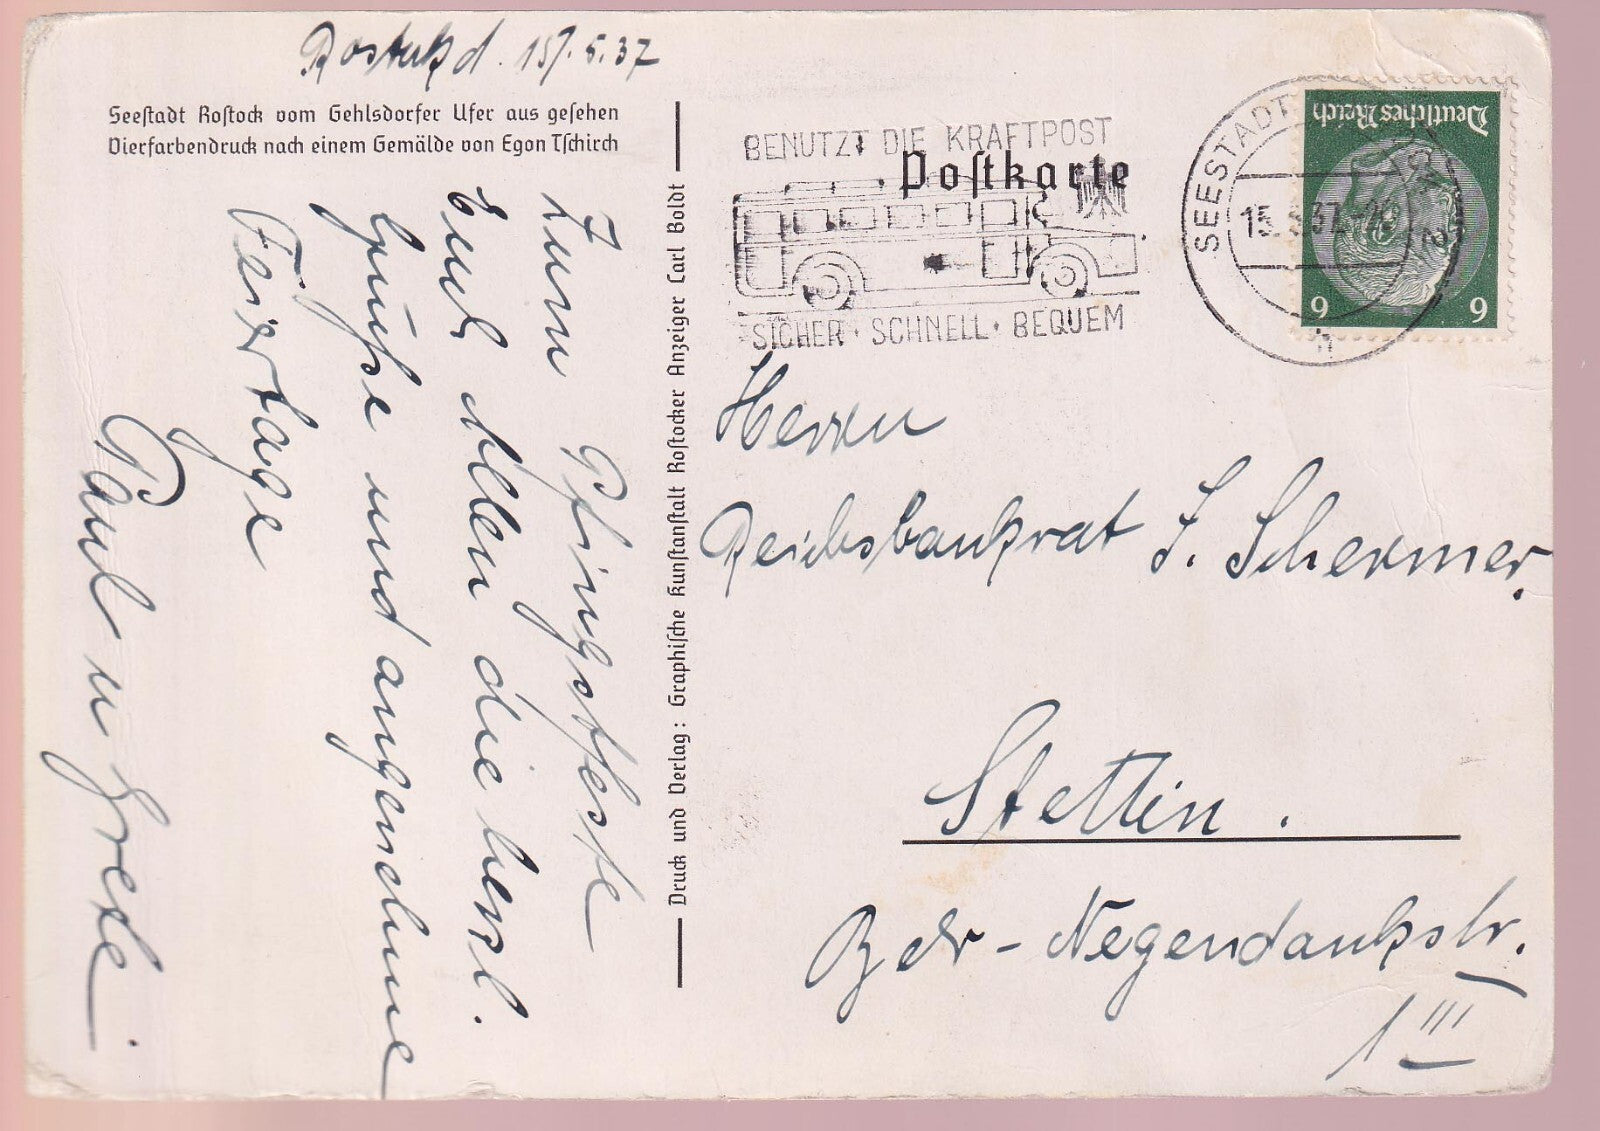 Rostock d. 15/.5.37
Seestadt Rostock vom Gehlsdorfer Ufer aus gesehen
Vierfarbendruck nach einem Gemälde von Egon Tschirch
Zum Pfingstfeste
Euch Allen die herzl.
Grüße und angenehme
Feiertage
Paul u Grete
Druck und Verlag: Graphische Kunstanstalt Rostocker Anzeiger Carl Boldt
BENUTZT DIE KRAFTPOST
Postkarte
SICHER · SCHNELL · BEQUEM
SEESTADT
15. 5.37
h
Deutsches Reich
6 6
Herrn
Reichsbankrat J. Schermer.
Stettin.
Negendankstr.
1 III